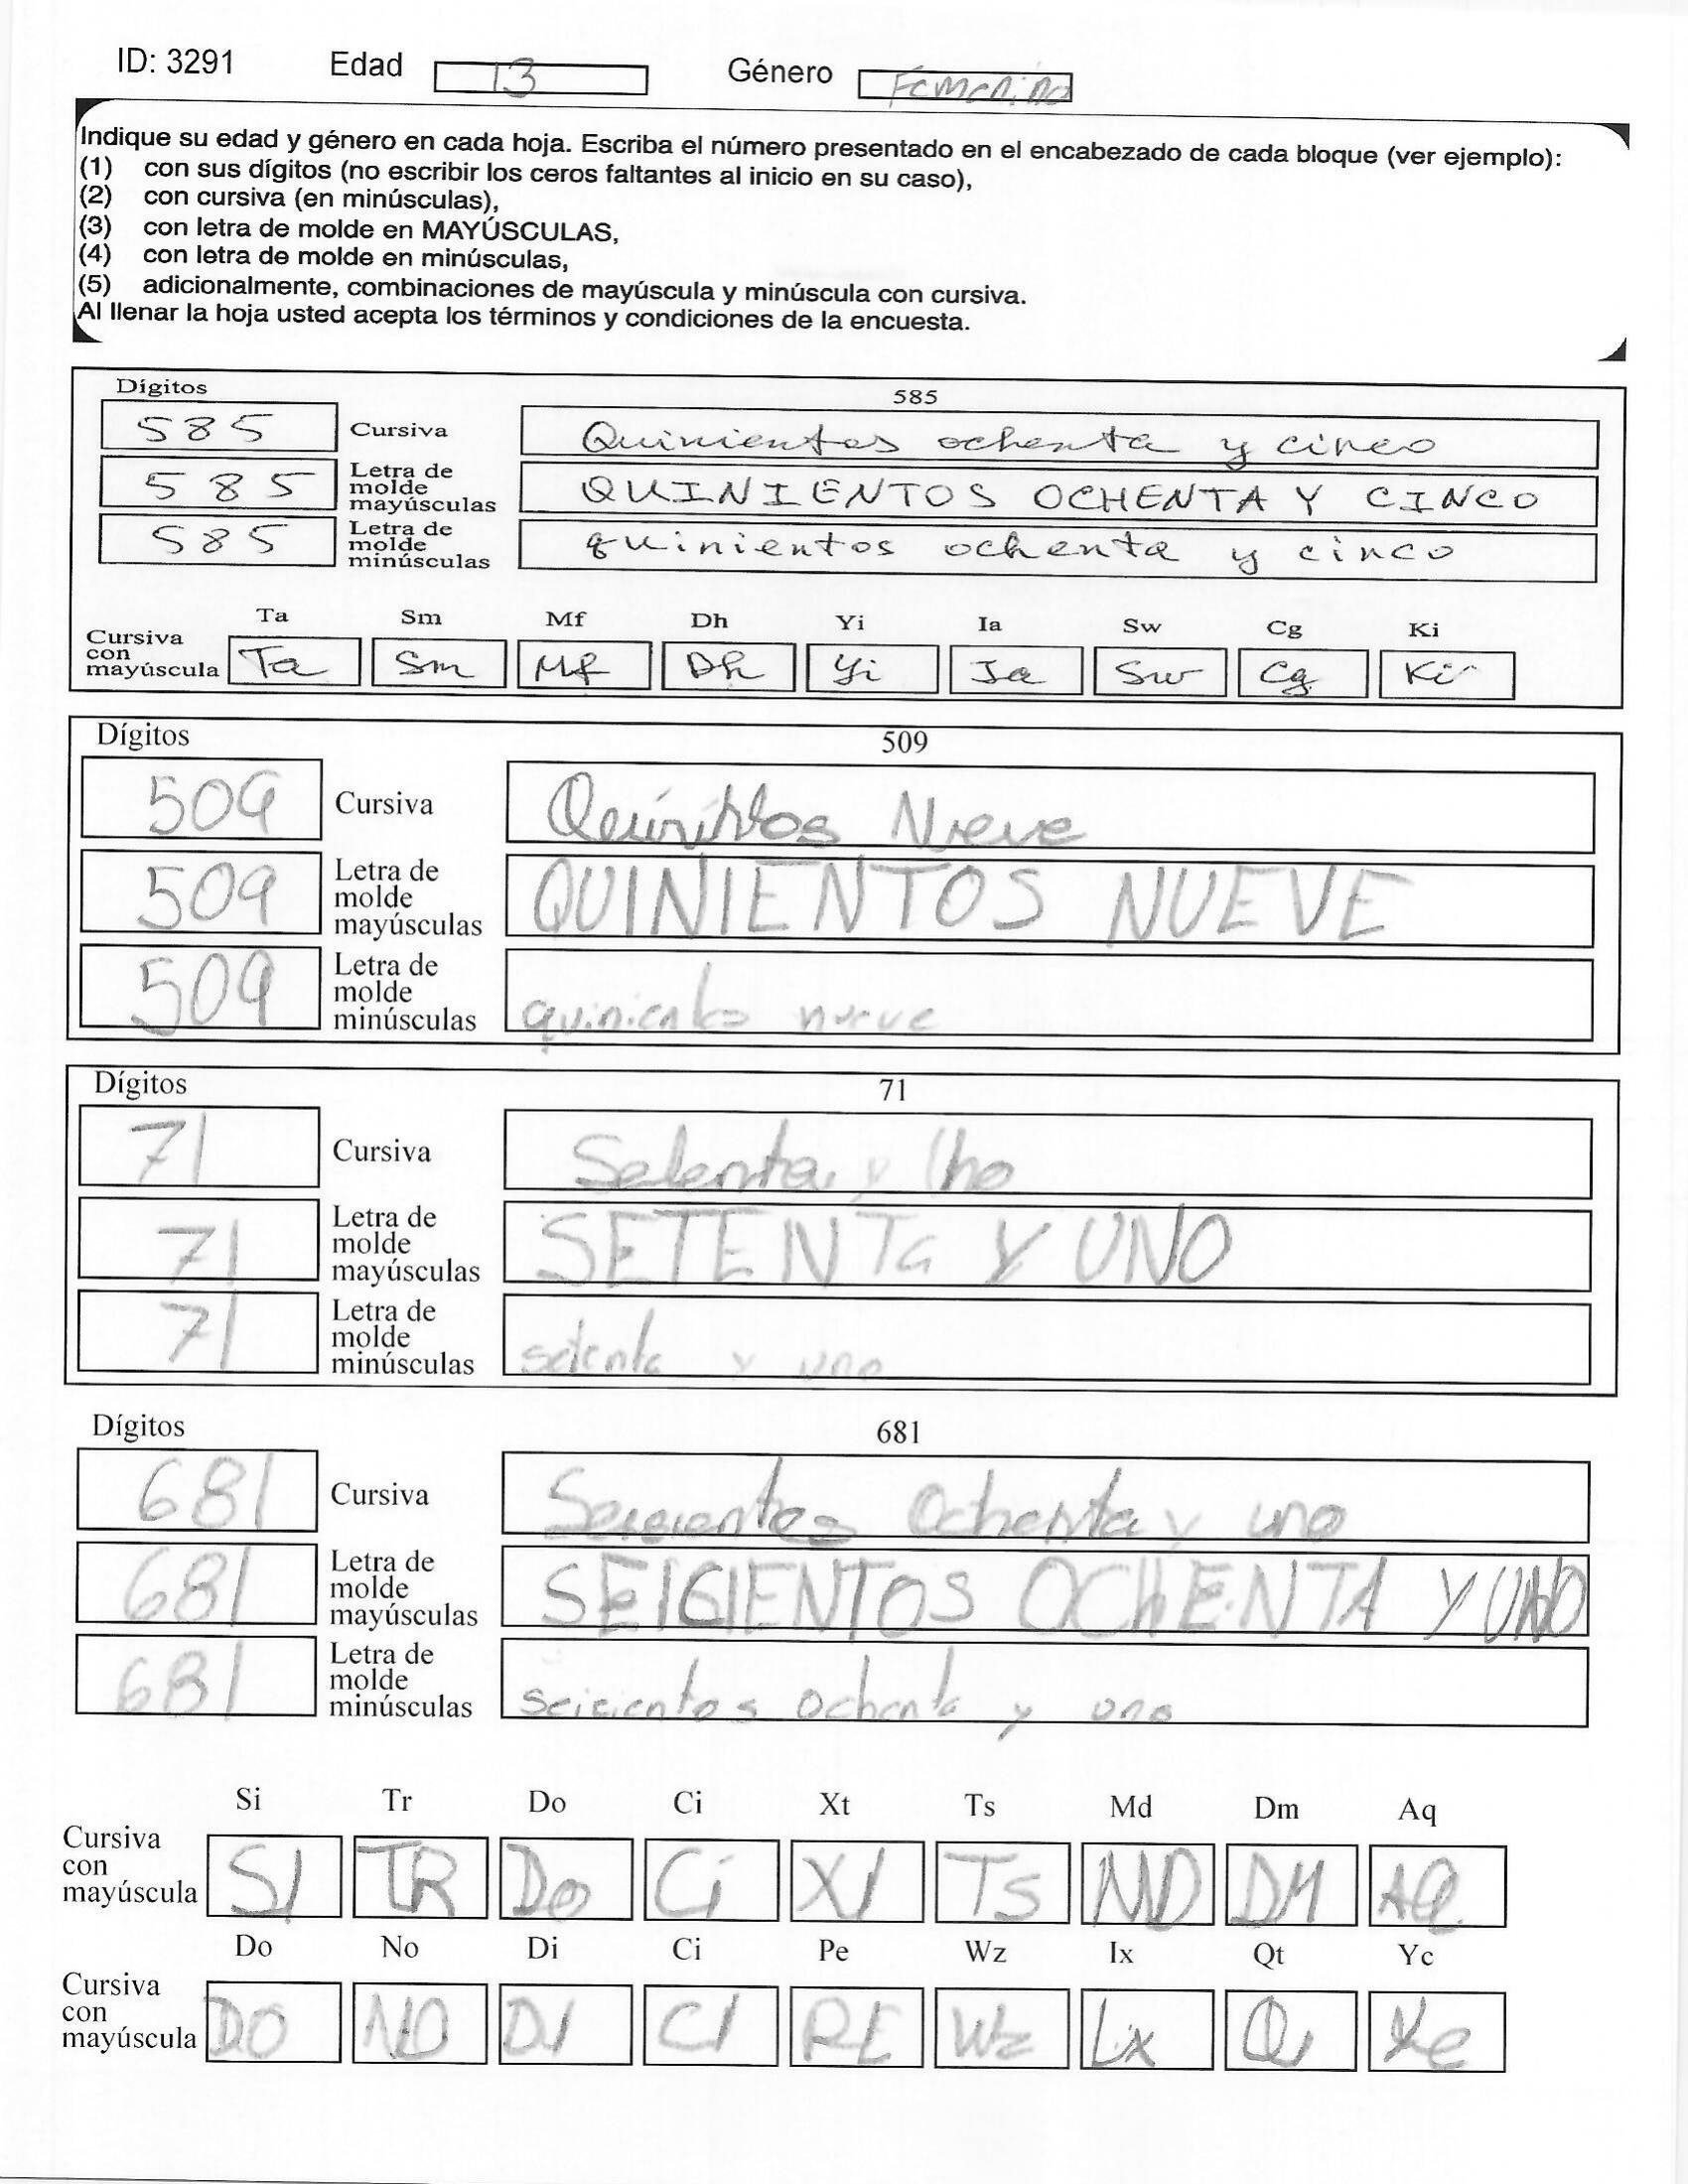 ID: 3291 Edad 13 Género Femenino
Indique su edad y género en cada hoja. Escriba el número presentado en el encabezado de cada bloque (ver ejemplo):
(1) con sus dígitos (no escribir los ceros faltantes al inicio en su caso),
(2) con cursiva (en minúsculas),
(3) con letra de molde en MAYÚSCULAS,
(4) con letra de molde en minúsculas,
(5) adicionalmente, combinaciones de mayúscula y minúscula con cursiva.
Al llenar la hoja usted acepta los términos y condiciones de la encuesta.
Dígitos 585
585 Cursiva Quinientos ochenta y cinco
585 Letra de molde mayúsculas QUINIENTOS OCHENTA Y CINCO
585 Letra de molde minúsculas quinientos ochenta y cinco
Ta Sm Mf Dh Yi Ia Sw Cg Ki
Cursiva con mayúscula Ta Sm Mf Dh Yi Ia Sw Cg Ki
Dígitos 509
509 Cursiva Nueve
509 Letra de molde mayúsculas QUINIENTOS NUEVE
509 Letra de molde minúsculas nueve
Dígitos 71
71 Cursiva Setenta y
71 Letra de molde mayúsculas SETENTa Y UNO
71 Letra de molde minúsculas setenta y uno
Dígitos 681
681 Cursiva Ochenta y uno
681 Letra de molde mayúsculas SEICIENTOS OCHENTA Y UNO
681 Letra de molde minúsculas seicientos ochenta y uno
Si Tr Do Ci Xt Ts Md Dm Aq
Cursiva con mayúscula SI TR Do Ci Ts MD DM AQ
Do No Di Ci Pe Wz Ix Qt Yc
Cursiva con mayúscula DO NO DI CI Wz Lx